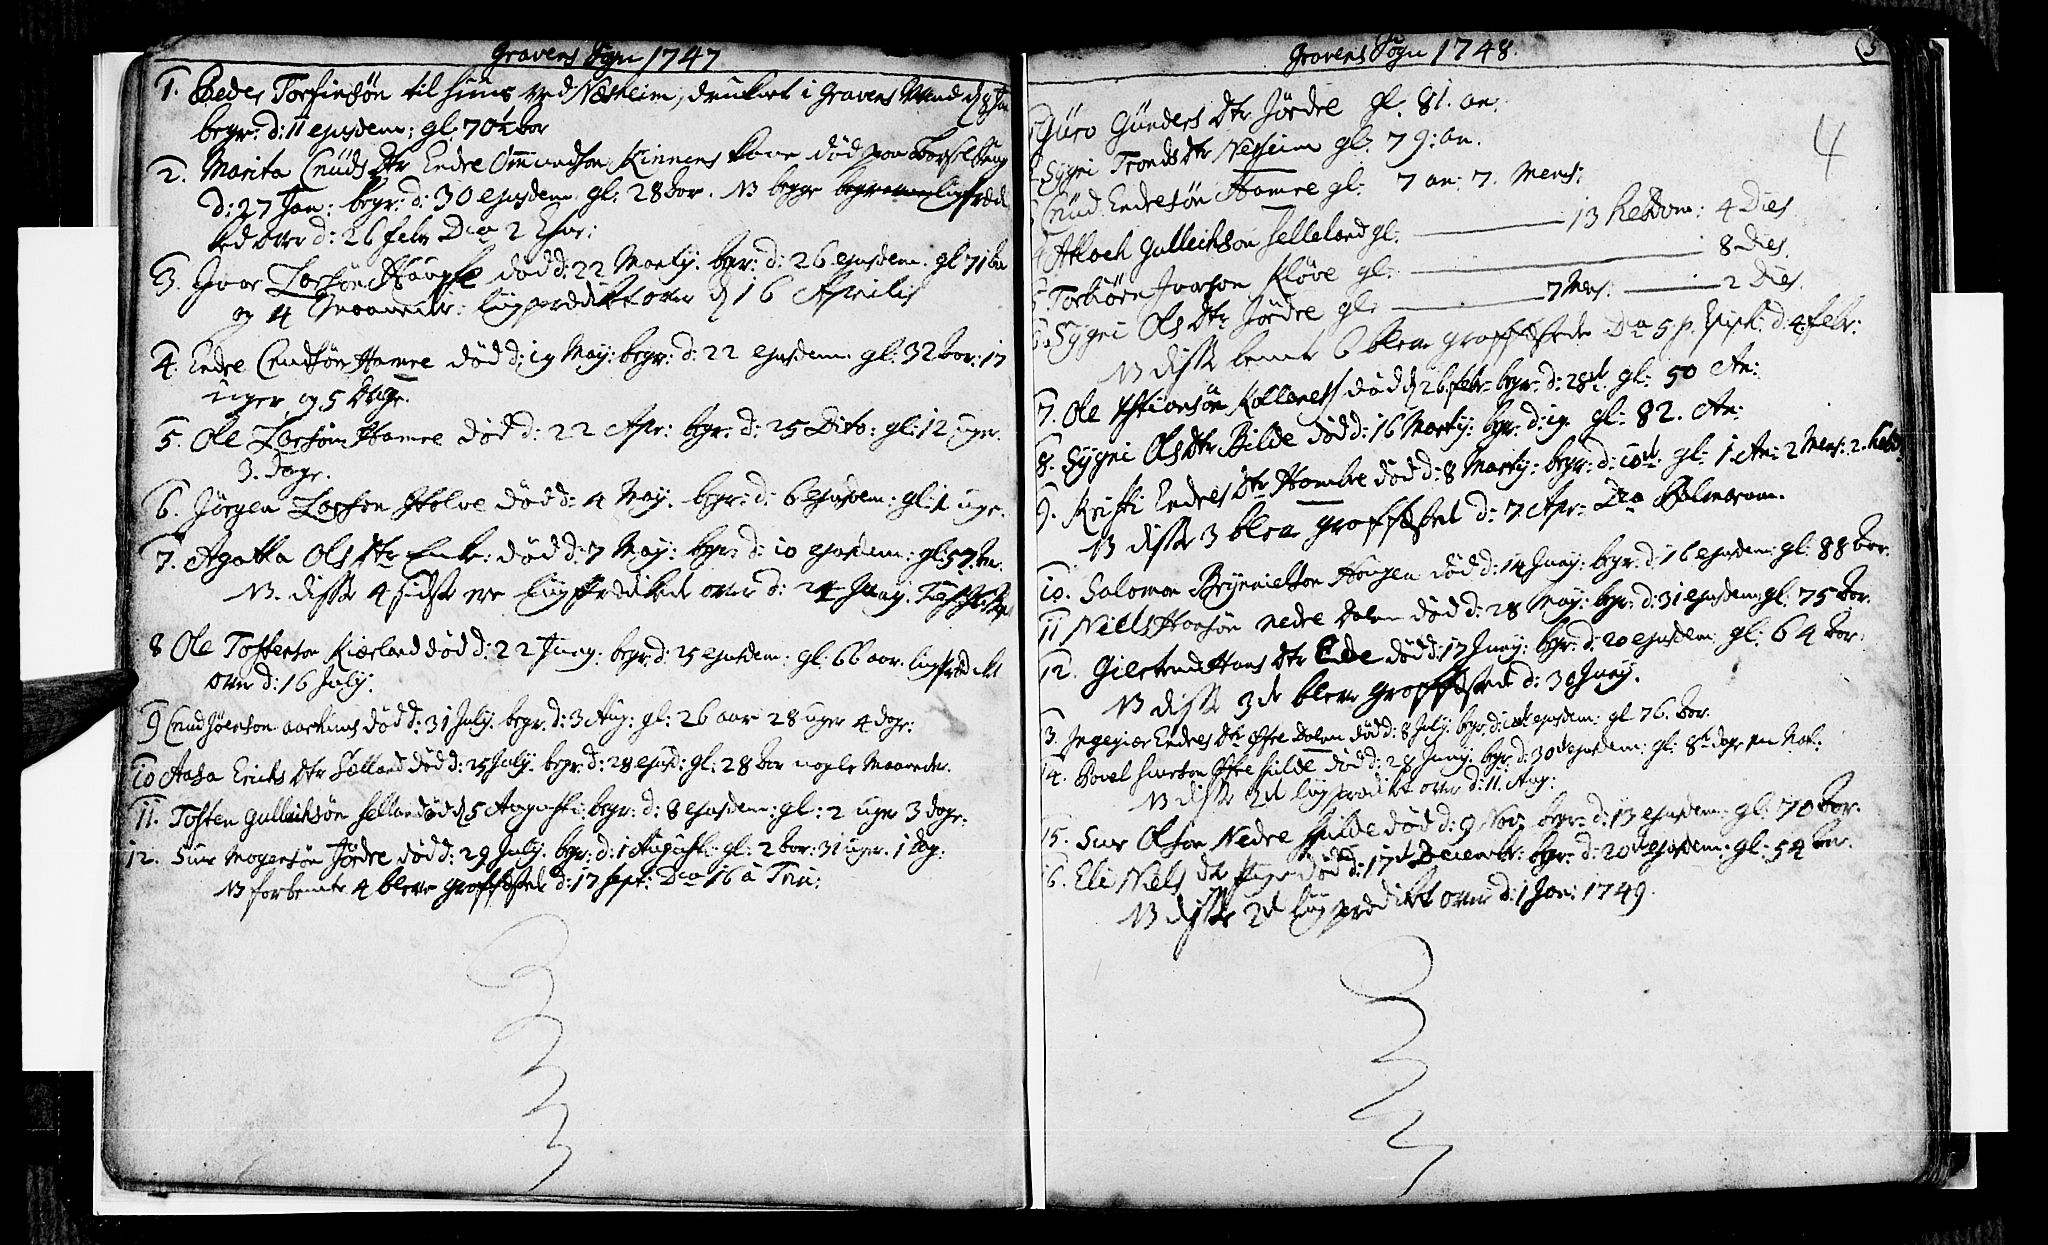 Gravens Sogn 1747
1. Peder Torfinsøn til huus ved Næsheim, druknet i Gravens Vand d 8 Jan
begr: d: 11 ejusdem: gl: 70½ aar
2. Marita Cnuds Dtr Endre Ommundsøn Kinnens kone død paa Barsel Seng
d: 27 Jan: begr: d: 30 ejusdem. gl: 28 aar. NB begge ligpræd
ket over d: 26 febr Dca 2
3. Ivar Larsøn Haugse død d: 22 Martij. begr: d: 26 ejusdem. gl 71 aar
og 4 Maaneder: ligprædiket over d 16 Aprilis
4. Endre Cnudsøn Hamre død d: 19 Maij: begr: d: 22 ejusdem: gl: 32 aar: 17
uger og 5 Dage.
5. Ole Larsøn Hamre død d: 22 Apr: begr: d: 25 Dito: gl: 12 uger.
3. dage.
6. Jørgen Larsøn Holve død d: 4 Maij. begr: d: 6 ejusdem: gl: 1 uge.
7. Agatha Ols Dtr død d: 7 Maij: begr: d: 10 ejusdem: gl: 57 an.
NB. disse 4 sidste ere ligprædiket over d: 24 Junij.
8 Ole Tostensøn Kiærland død d: 22 Junij: begr: d: 25 ejusdem: gl: 66 aar. ligprædiket
over d: 16 Julij.
9 Cnud Joensøn død d: 31 Julij. begr: d: 3 Aug: gl: 26 aar 28 uger 4 dage:
10 Aasa Erichs Dtr Sælland død d: 25 Julij. begr: d: 28 ejusd: gl: 28 aar nogle Maaneder.
11. Tosten Gullichsøn Selland død d 5 Augusti: begr: d: 8 ejusdem: gl: 2 uger 3 dage:
12. Siur Mogensøn Jørdre død d: 29 Julij. begr: d: 1 August: gl: 2 aar: 31 uger. 1 dag:
NB forbemte 4 bleve graffæstet d: 17 Sept: Dca 16 à Trin:
Gravens Sogn 1748.
Guro Gunders Dtr Jørdre gl: 81. an:
Sygni Tronds Dtr Nesheim gl: 79: an.
4
Cnud Endresøn Hamre gl: 7 an: 7. Mens:
4 Atloch Gullichsøn Selleland gl: 13 hebdom: 4 Dies.
5 Torbiørn Ivarsøn Kløve gl: 8 Dies.
6. Sygni Ols Dtr Jørdre gl: 7 Mens: 2 Dies.
NB disse bemte 6 bleve graffæstede Dca 5 p. Epiph: d. 4 febr:
7. Ole Kollanes død d 26 febr: begr: d: 28de gl: 50 An:
8. Sygni Ols Dtr Bilde død d: 16 Martij: begr: d: 19. gl: 82. An:
9. Kristi Endres Dtr Hambre død d: 8 Martij: begr: d: 10de: gl: 1. An: 2 Mens: 2. hebd:
NB disse 3 bleve graffæstet d: 7 Apr: Dca Palmarum.
10. Salomon Brynnielsøn Haugen død d: 14 Junij: begr: d: 16 ejusdem: gl: 88 aar.
11 Niels Hansøn nedre Dalen død d: 28 Maij: begr: d: 31 ejusdem: gl: 75 aar.
12. Giertrud Hans Dtr Eide død d: 17 Junij: begr: d: 20 ejusdem: gl: 64 aar:
NB disse 3de bleve graffæstet d: 30 Junij.
3. Ingegiær Endres Dtr øfre Dalen død d: 8 Julij. begr: d: 10de ejusdem: gl 76. aar.
14. Povel Siursøn øfre Hilde død d: 28 Junij. begr: d: 30de ejusdem: gl: 8te dage en Nat.
NB disse 2de ligprædiket over d: 11. Aug:
15. Siur Olsøn Nedre Hilde død d: 9 Nov: begr: d: 13 ejusdem: gl: 70 aar.
16. Eli Niels Dtr død d: 17de Decembr: begr: d: 20de ejusdem: gl: 54 aar.
NB disse 2de ligprædiket over d: 1 Jan: 1749.